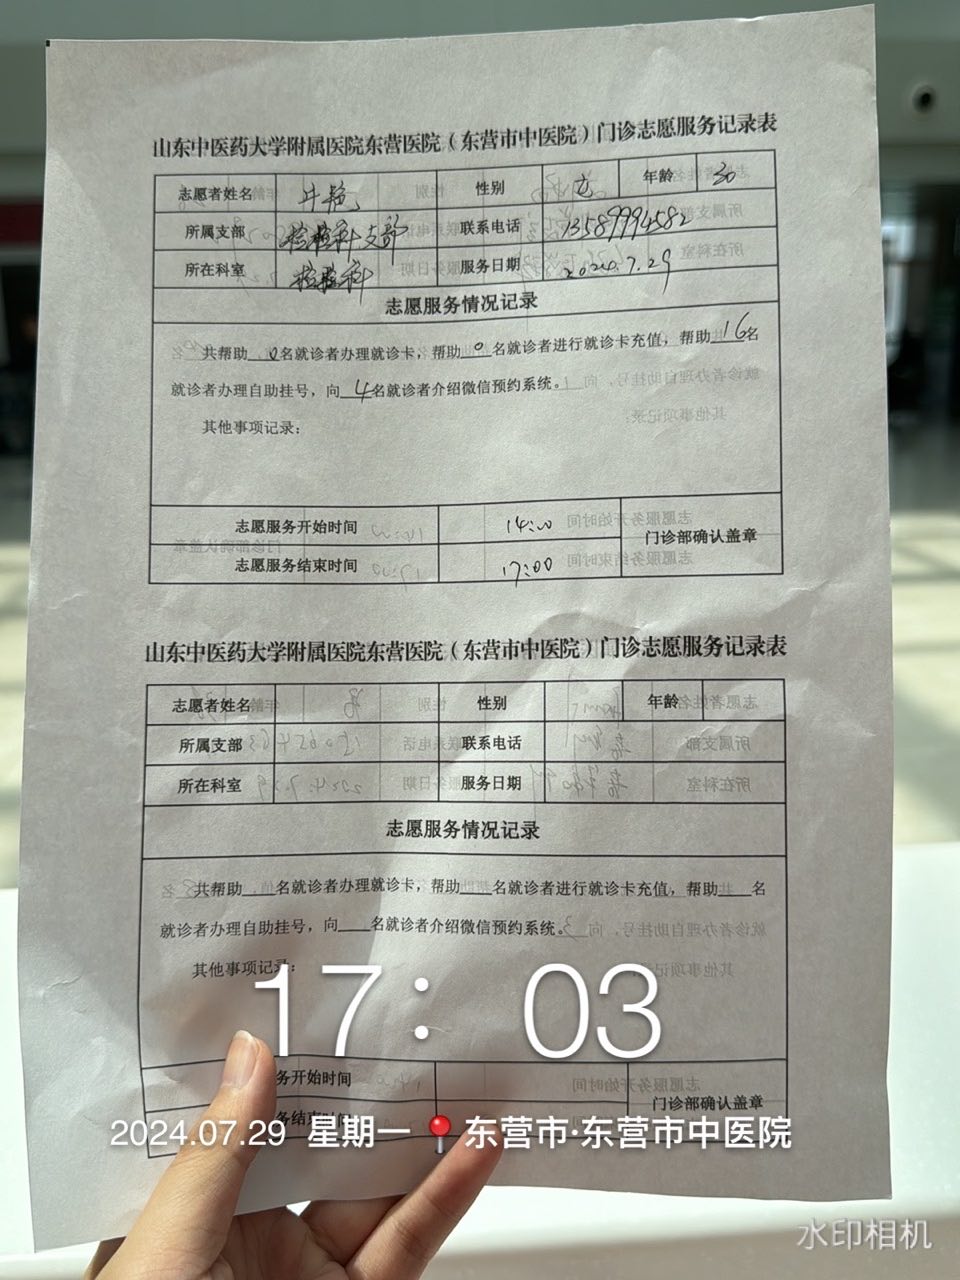 山东中医药大学附属医院东营医院（东营市中医院）门诊志愿服务记录表
志愿者姓名 井艳 性别 女 年龄 30
所属支部 检验科支部 联系电话 13589994582
所在科室 检验科 服务日期 2024.7.29
志愿服务情况记录
共帮助 0 名就诊者办理就诊卡，帮助 0 名就诊者进行就诊卡充值，帮助 16 名
就诊者办理自助挂号，向 4 名就诊者介绍微信预约系统。
其他事项记录：
志愿服务开始时间 14:00 门诊部确认盖章
志愿服务结束时间 17:00
山东中医药大学附属医院东营医院（东营市中医院）门诊志愿服务记录表
志愿者姓名 性别 年龄
所属支部 联系电话
所在科室 服务日期
志愿服务情况记录
共帮助___名就诊者办理就诊卡，帮助___名就诊者进行就诊卡充值，帮助___名
就诊者办理自助挂号，向___名就诊者介绍微信预约系统。
其他事项记录：
17:03
务开始时间 门诊部确认盖章
务结束时间
2024.07.29 星期一 东营市·东营市中医院
水印相机